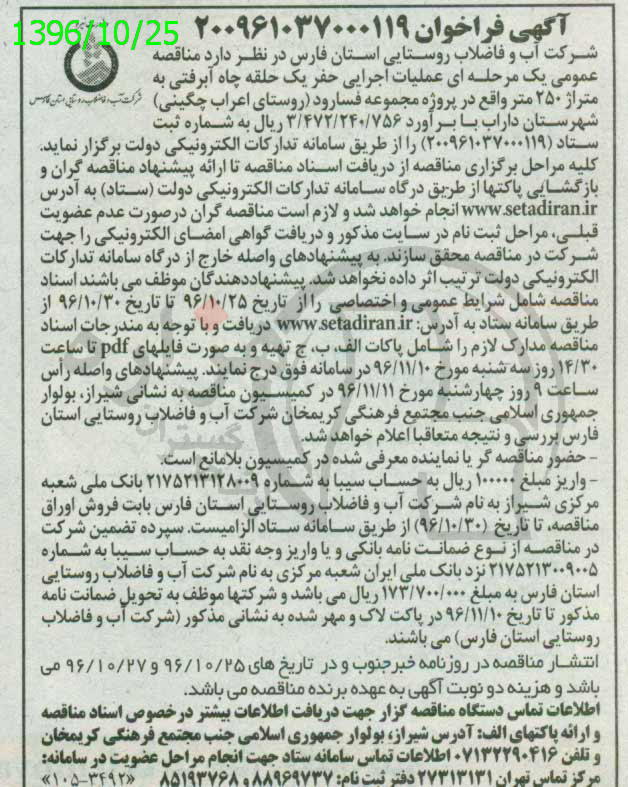 1396/10/25
آگهی فراخوان ۲۰۰۹۶۱۰۳۷۰۰۰۱۱۹
شرکت آب و فاضلاب روستایی استان فارس
شرکت آب و فاضلاب روستایی استان فارس در نظر دارد مناقصه
عمومی یک مرحله ای عملیات اجرایی حفر یک حلقه چاه آبرفتی به
متراژ ۲۵۰ متر واقع در پروژه مجموعه فسارود (روستای اعراب چگینی)
شهرستان داراب با برآورد ۳/۴۷۲/۲۴۰/۷۵۶ ریال به شماره ثبت
ستاد (۲۰۰۹۶۱۰۳۷۰۰۰۱۱۹) را از طریق سامانه تدارکات الکترونیکی دولت برگزار نماید.
کلیه مراحل برگزاری مناقصه از دریافت اسناد مناقصه تا ارائه پیشنهاد مناقصه گران و
بازگشایی پاکتها از طریق درگاه سامانه تدارکات الکترونیکی دولت (ستاد) به آدرس
www.setadiran.ir انجام خواهد شد و لازم است مناقصه گران درصورت عدم عضویت
قبلی، مراحل ثبت نام در سایت مذکور و دریافت گواهی امضای الکترونیکی را جهت
شرکت در مناقصه محقق سازند. به پیشنهادهای واصله خارج از درگاه سامانه تدارکات
الکترونیکی دولت ترتیب اثر داده نخواهد شد. پیشنهاددهندگان موظف می باشند اسناد
مناقصه شامل شرایط عمومی و اختصاصی را از تاریخ ۹۶/۱۰/۲۵ تا تاریخ ۹۶/۱۰/۳۰ از
طریق سامانه ستاد به آدرس: www.setadiran.ir دریافت و با توجه به مندرجات اسناد
مناقصه مدارک لازم را شامل پاکات الف، ب، ج تهیه و به صورت فایلهای pdf تا ساعت
۱۴/۳۰ روز سه شنبه مورخ ۹۶/۱۱/۱۰ در سامانه فوق درج نمایند. پیشنهادهای واصله رأس
ساعت ۹ روز چهارشنبه مورخ ۹۶/۱۱/۱۱ در کمیسیون مناقصه به نشانی شیراز، بولوار
جمهوری اسلامی جنب مجتمع فرهنگی کریمخان شرکت آب و فاضلاب روستایی استان
فارس بررسی و نتیجه متعاقبا اعلام خواهد شد.
- حضور مناقصه گر یا نماینده معرفی شده در کمیسیون بلامانع است.
- واریز مبلغ ۱۰۰۰۰۰ ریال به حساب سیبا به شماره ۲۱۷۵۲۱۳۱۲۸۰۰۹ بانک ملی شعبه
مرکزی شیراز به نام شرکت آب و فاضلاب روستایی استان فارس بابت فروش اوراق
مناقصه، تا تاریخ (۹۶/۱۰/۳۰) از طریق سامانه ستاد الزامیست. سپرده تضمین شرکت
در مناقصه از نوع ضمانت نامه بانکی و یا واریز وجه نقد به حساب سیبا به شماره
۲۱۷۵۲۱۳۰۰۹۰۰۵ نزد بانک ملی ایران شعبه مرکزی به نام شرکت آب و فاضلاب روستایی
استان فارس به مبلغ ۱۷۳/۷۰۰/۰۰۰ ریال می باشد و شرکتها موظف به تحویل ضمانت نامه
مذکور تا تاریخ ۹۶/۱۱/۱۰ در پاکت لاک و مهر شده به نشانی مذکور (شرکت آب و فاضلاب
روستایی استان فارس) می باشند.
انتشار مناقصه در روزنامه خبرجنوب و در تاریخ های ۹۶/۱۰/۲۵ و ۹۶/۱۰/۲۷ می
باشد و هزینه دو نوبت آگهی به عهده برنده مناقصه می باشد.
اطلاعات تماس دستگاه مناقصه گزار جهت دریافت اطلاعات بیشتر درخصوص اسناد مناقصه
و ارائه پاکتهای الف: آدرس شیراز، بولوار جمهوری اسلامی جنب مجتمع فرهنگی کریمخان
و تلفن ۰۷۱۳۲۲۹۰۴۱۶ اطلاعات تماس سامانه ستاد جهت انجام مراحل عضویت در سامانه:
مرکز تماس تهران ۲۷۳۱۳۱۳۱ دفتر ثبت نام: ۸۸۹۶۹۷۳۷ و ۸۵۱۹۳۷۶۸ «۱۰۵-۳۴۹۲»